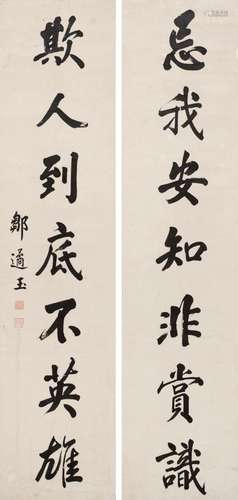 忌我安知非賞識
欺人到底不英雄
鄒適玉